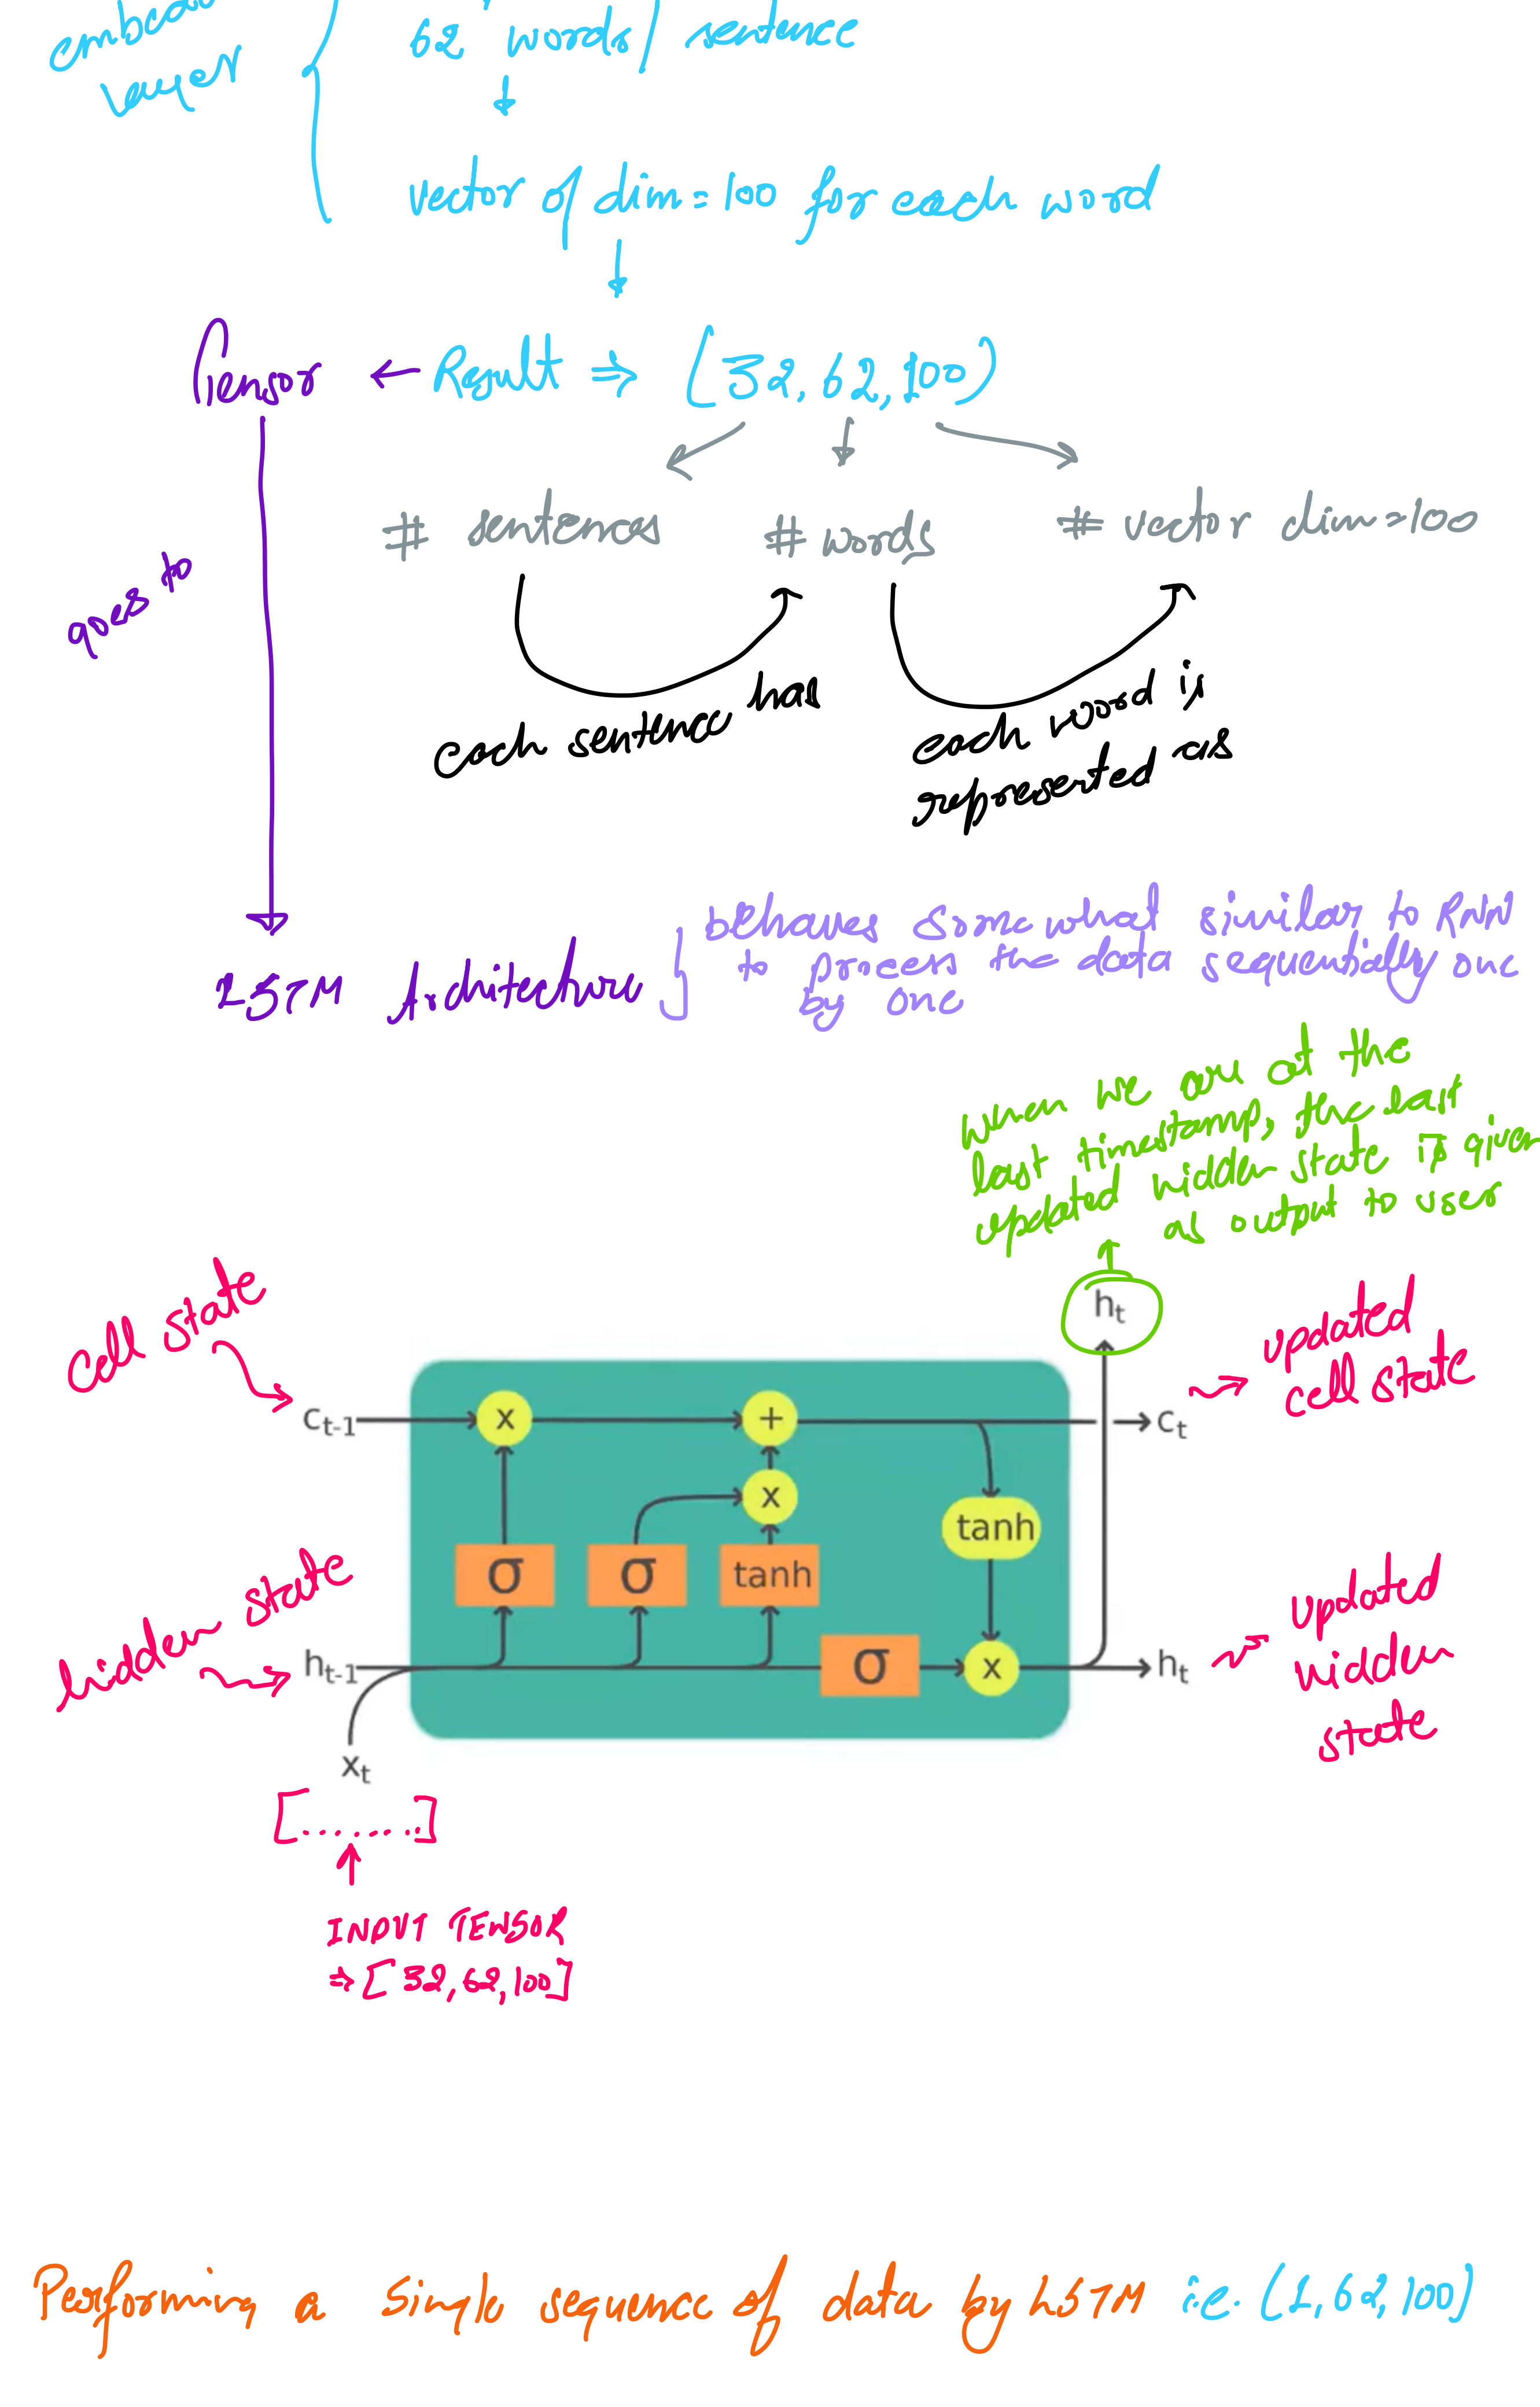 layer
62 words/ sentence
vector of dim=100 for each word
Tensor ← Result ⇒ (32,62,100)
# sentences
# words
# vector dim=100
goes to
each sentence has
each word is
represented as
LSTM Architecture
behaves somewhat similar to RNN
to process the data sequentially one
by one
when we are at the
last timestamp, the last
updated hidden state is given
as output to user
cell state
hₜ
updated
cell state
cₜ₋₁
x
+
cₜ
x
tanh
σ
σ
tanh
hidden state
updated
hidden
state
hₜ₋₁
σ
x
hₜ
xₜ
[.......]
INPUT TENSOR
⇒[32,62,100]
Performing a single sequence of data by LSTM i.e. (1,62,100)